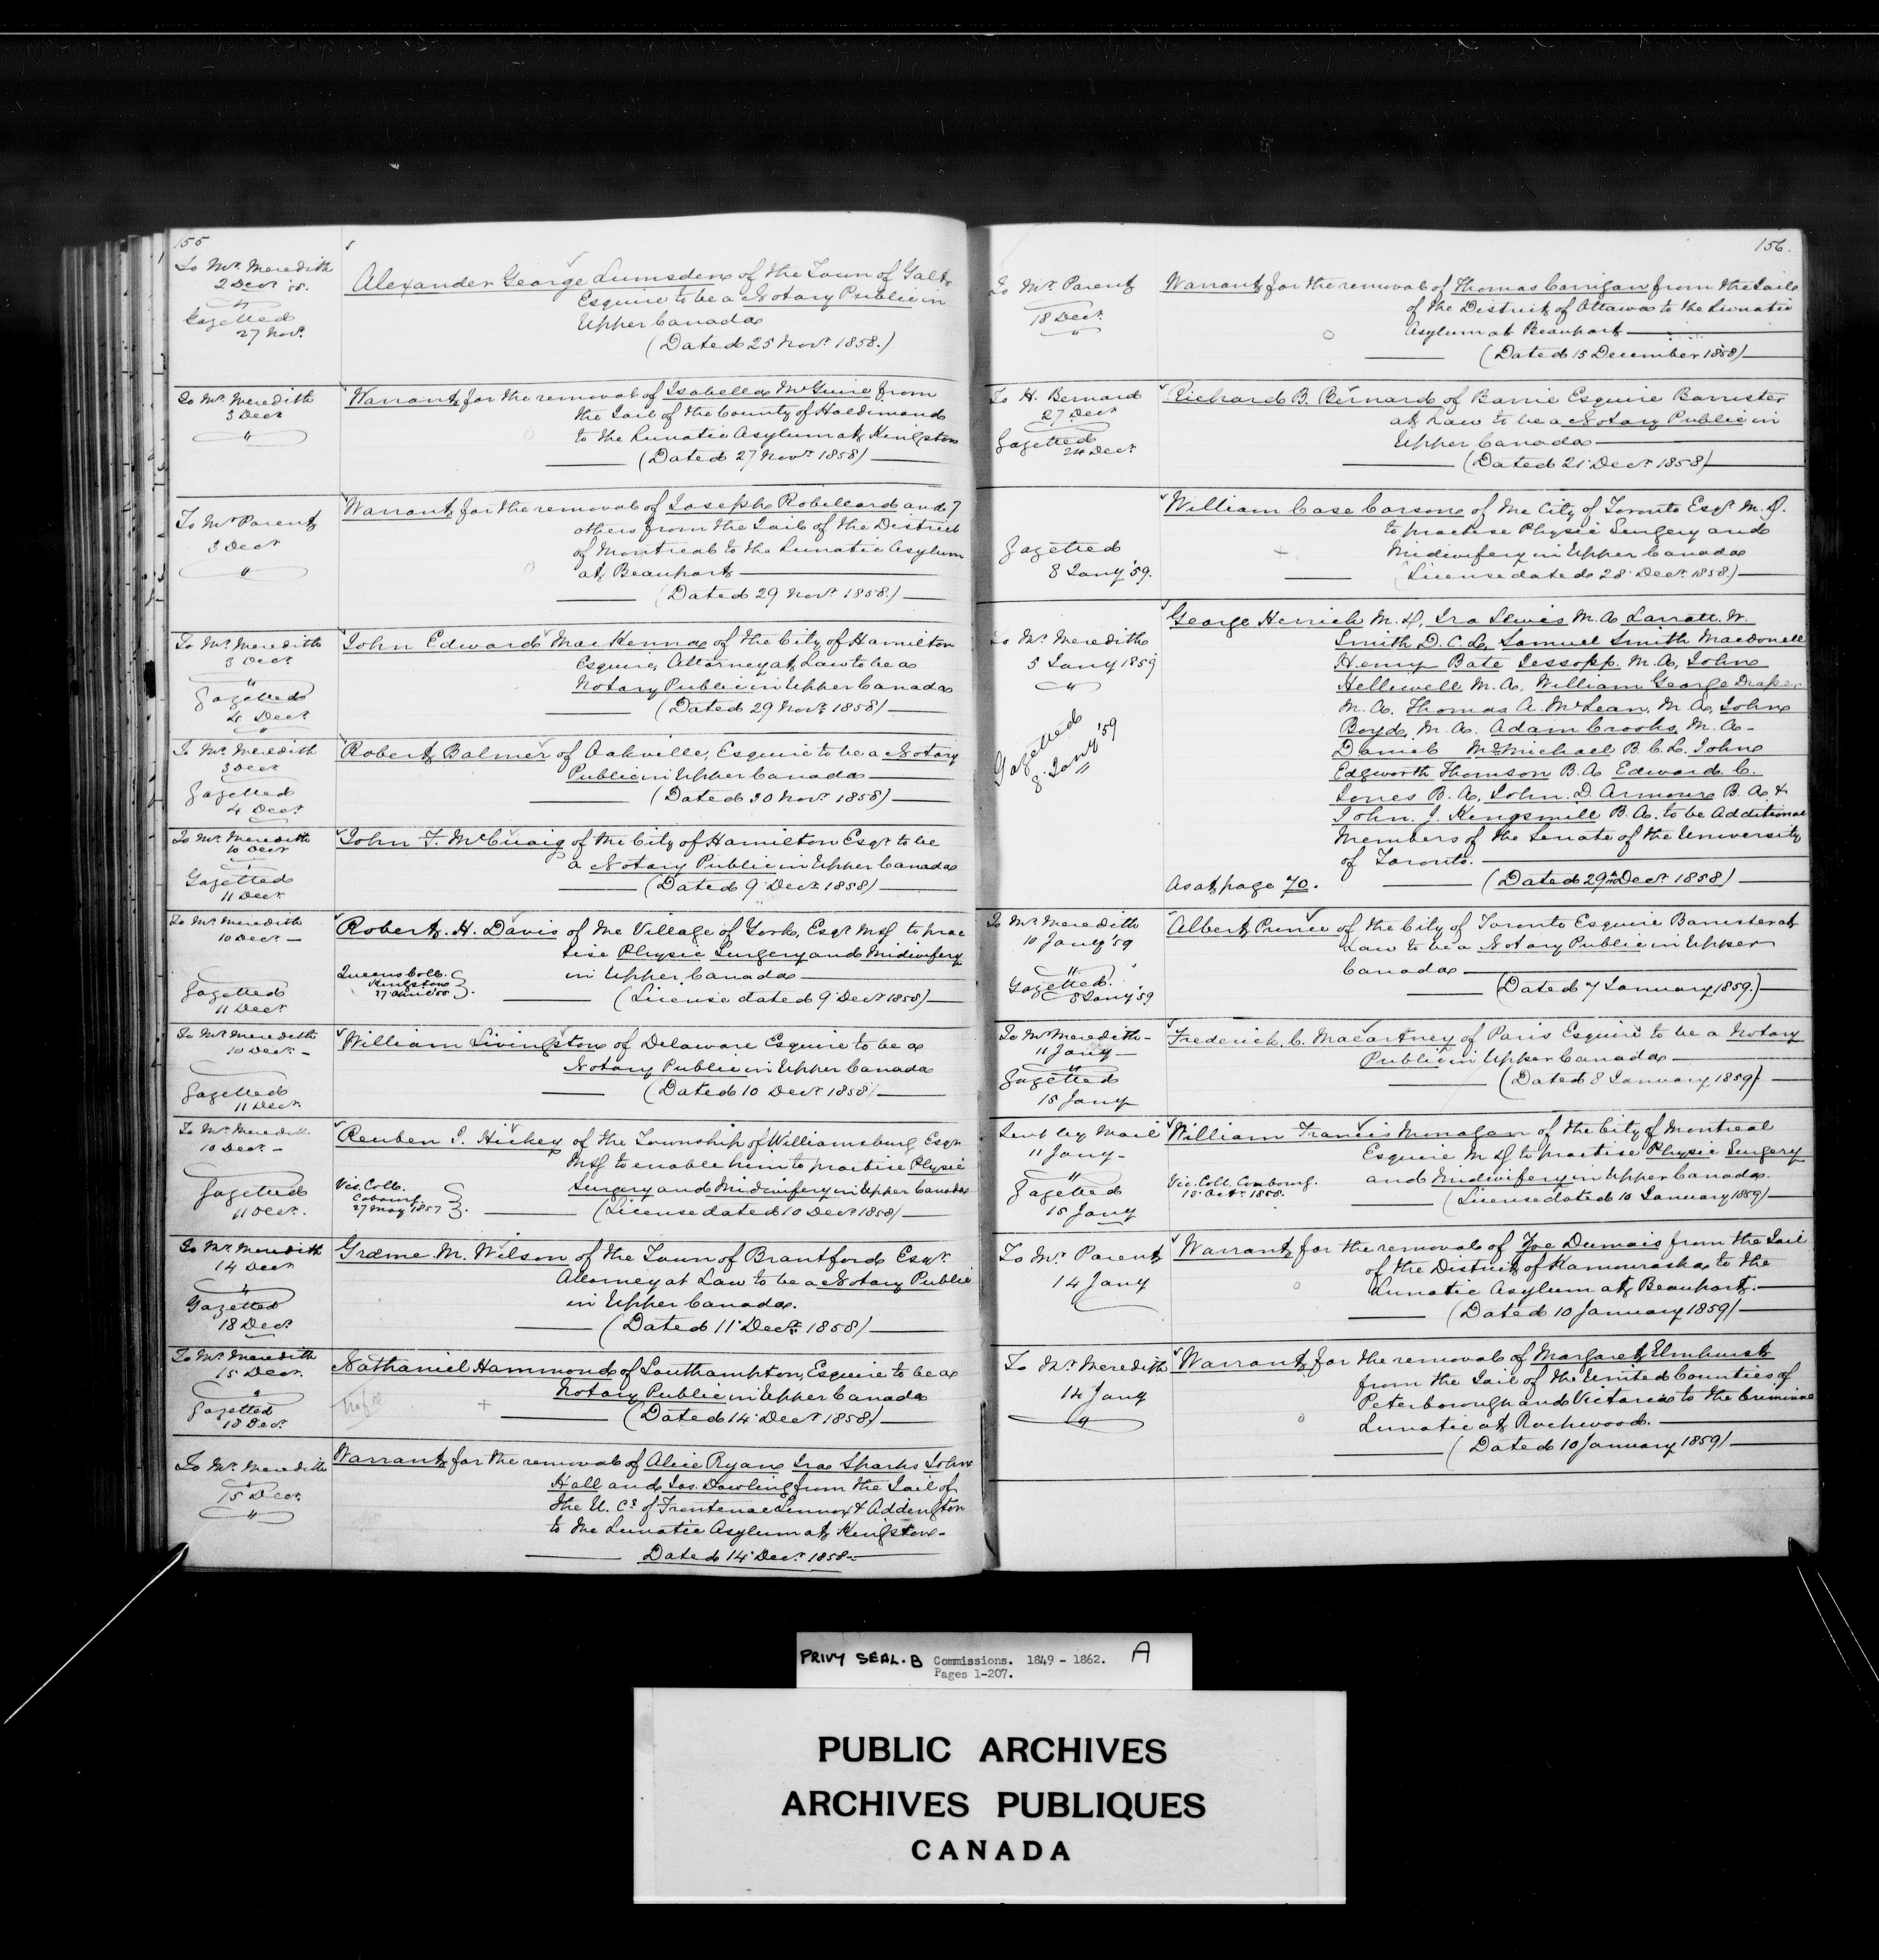 155
To Mr. Meredith
2 Decr 58.
"
Gazetted
27 Novr.
Alexander George Lumsden of the Town of Galt
Esquire to be a Notary Public in
Upper Canada
(Dated 25 Novr. 1858.)
To Mr. Meredith
3 Decr
"
Warrant for the removal of Isabella McGuire from
the Jail of the County of Haldimand
to the Lunatic Asylum at Kingston
(Dated 27 Novr. 1858)
To Mr Parent
3 Decr
"
Warrant for the removal of Joseph Robillard and 7
others from the Jail of the District
of Montreal to the Lunatic Asylum
at Beauport
(Dated 29 Novr. 1858.)
To Mr. Meredith
3 Decr
"
Gazetted
4 Decr
"
John Edward MacKenna of the City of Hamilton
Esquire, Attorney at Law to be a
Notary Public in Upper Canada
(Dated 29 Novr. 1858)
To Mr. Meredith
3 Decr
Gazetted
4 Decr.
Robert Balmer of Oakville, Esquire to be a Notary
Public in Upper Canada
(Dated 30 Novr. 1858)
To Mr. Meredith
10 Decr
Gazetted
11 Decr
John F. McCuaig of the City of Hamilton Esqr. to be
a Notary Public in Upper Canada
(Dated 9 Decr. 1858)
To Mr. Meredith
10 Decr. —
Gazetted
11 Decr
Robert. H. Davis of the Village of York, Esqr. MD to prac
tise Physic Surgery and Midwifery
in Upper Canada
Queens Coll.
Kingston
(License dated 9 Decr 1858)
To Mr. Meredith
10 Decr. —
Gazetted
11 Decr.
William Livingston of Delaware Esquire to be a
Notary Public in Upper Canada
(Dated 10 Decr. 1858)
To Mr. Meredith
10 Decr. —
Gazetted
11 Decr.
Reuben I. Hickey of the Township of Williamsburg Esqr
MD to enable him to practise Physic
Surgery and Midwifery in Upper Canada
Vic. Coll.
Cobourg
27 May 1857
(License dated 10 Decr 1858)
To Mr. Meredith
14 Decr
"
Gazetted
18 Decr.
Græme. M. Wilson of the Town of Brantford Esqr.
Attorney at Law to be a Notary Public
in Upper Canada.
(Dated 11 Decr. 1858)
To Mr. Meredith
15 Decr.
"
Gazetted
18 Decr.
Nathaniel Hammond of Southampton, Esquire to be a
Notary Public in Upper Canada
(Dated 14 Decr. 1858)
To Mr. Meredith
15 Decr.
"
Warrant for the removal of Alice Ryan Ira Sparks John
Hall and Jas. Dowling from the Jail of
the U. Cs. of Frontenac Lennox & Addington
to the Lunatic Asylum at Kingston —
Dated 14 Decr. 1858 —
156.
To Mr. Parent
18 Decr.
"
Warrant for the removal of Thomas Corrigan from the Jail
of the District of Ottawa to the Lunatic
Asylum at Beauport
(Dated 15 December 1858)
To H. Bernard
27 Decr
Gazetted
24 Decr.
Richard B. Bernard of Barrie Esquire Barrister
at Law to be a Notary Public in
Upper Canada
(Dated 21 Decr. 1858)
Gazetted
8 Jany '59.
William Case Carson of the City of Toronto Esqr. M.D.
to practise Physic Surgery and
Midwifery in Upper Canada
(License dated 28 Decr. 1858.)
To Mr. Meredith
5 Jany 1859
"
Gazetted
8. Jany '59
"
George Herrick M.D, Ira Lewis M.A Larratt. W.
Smith D.C.L, Samuel Smith Macdonell
Henry Bate Jessopp. M.A, John
Helliwell M.A, William George Draper
M.A. Thomas A. McLean, M.A, John
Boyd, M.A. Adam Crooks, M.A —
Daniel McMichael B.C.L. John
Edgworth Thomson B.A Edward. C.
Jones B.A, John. D. Armour B.A &
John. J. Kingsmill B.A. to be Additional
Members of the Senate of the University
of Toronto.
As at page 70.
(Dated 29nd Decr. 1858)
To Mr. Meredith
10 Jany '59
"
Gazetted.
8 Jany '59
Albert Prince of the City of Toronto Esquire Barrister at
Law to be a Notary Public in Upper
Canada
(Dated 7 January 1859.)
To Mr Meredith —
11 Jany —
"
Gazetted
15 Jany
Frederick. C. Macartney of Paris Esquire to be a Notary
Public in Upper Canada
(Dated 8 January 1859)
Sent by Mail
11 Jany —
"
Gazetted
15 Jany
William Francis Monagan of the City of Montreal
Esquire MD to practise Physic Surgery
and Midwifery in Upper Canada.
Vic. Coll. Coubourg.
(License dated 10 January 1859)
To Mr. Parent
14 Jany
Warrant for the removal of Zoe Dumais from the Jail
of the District of Kamouraska to the
Lunatic Asylum at Beauport.
(Dated 10 January 1859)
To Mr. Meredith
14 Jany
"
Warrant for the removal of Margaret Elmhurst
from the Jail of the United Counties of
Peterborough and Victoria to the Criminal
Lunatic at Rockwood.
(Dated 10 January 1859)
PRIVY SEAL. B Commissions. 1849 - 1862. A
Pages 1-207.
PUBLIC ARCHIVES
ARCHIVES PUBLIQUES
CANADA